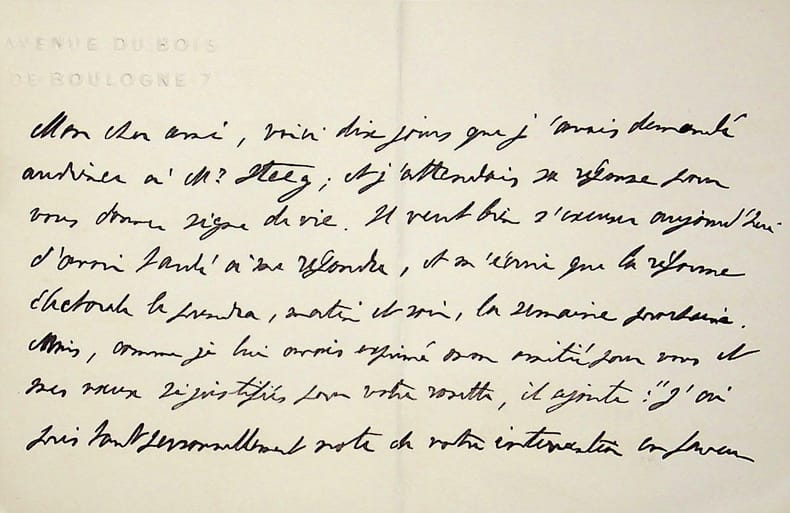 AVENUE DU BOIS
DE BOULOGNE 7
Mon cher ami, voici dix jours que j'avais demandé
audience à Mr Steeg; et j'attendais sa réponse pour
vous donner signe de vie. Il veut bien s'excuser aujourd'hui
d'avoir tardé à me répondre, et m'écrit que la réforme
électorale le prendra, matin et soir, la semaine prochaine.
Mais, comme je lui avais exprimé mon amitié pour vous et
mes vœux si justifiés pour votre rosette, il ajoute : "J'ai
pris tout personnellement note de votre intervention en faveur